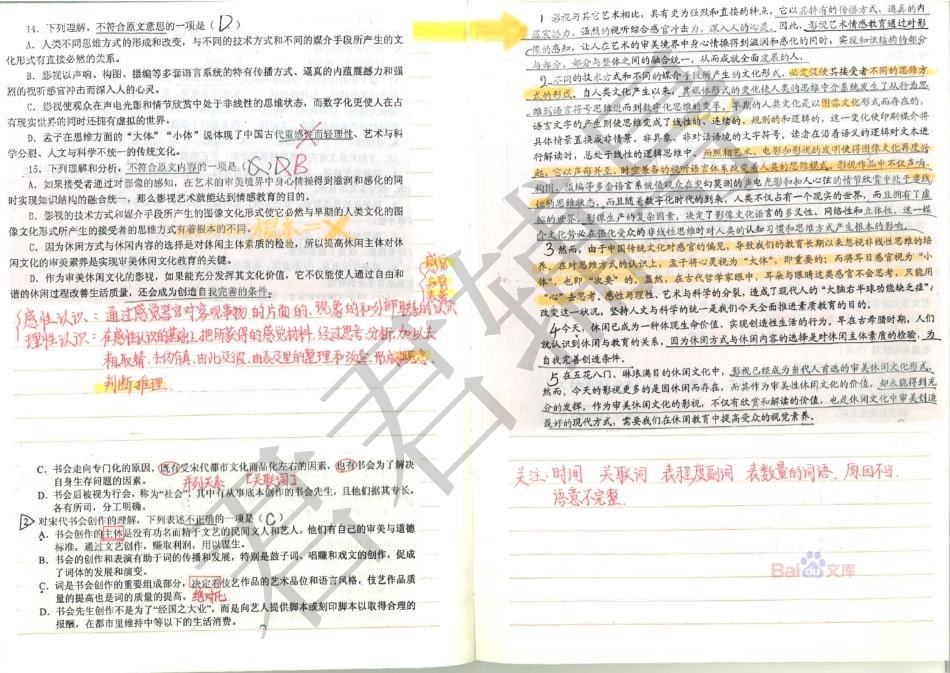 14. 下列理解，不符合原文意思的一项是（D）
A．人类不同思维方式的形成和改变，与不同的技术方式和不同的媒介手段所产生的文
化形式有直接必然的关系。
B．影视以声响、构图、摄编等多套语言系统的特有传播方式、逼真的内蕴震撼力和强
烈的视听感官冲击而深入人的心灵。
C．影视使观众在声电光影和情节欣赏中处于非线性的思维状态，而数字化更使人在占
有现实世界的同时还拥有虚拟的世界。
D．孟子在思维方面的“大体”“小体”说体现了中国古代重感性而轻理性、艺术与科
学分裂、人文与科学不统一的传统文化。
15. 下列理解和分析，不符合原文内容的一项是 D B
A．如果接受者通过对影像的感知，在艺术的审美境界中身心情操得到滋润和感化的同
时实现知识结构的融合统一，那么影视艺术就能达到情感教育的目的。
B．影视的技术方式和媒介手段所产生的图像文化形式使它必然与早期的人类文化的图
像文化形式所产生的接受者的思维方式有着根本的不同。
根本一
C．因为休闲方式与休闲内容的选择是对休闲主体素质的检验，所以提高休闲主体对休
闲文化的审美素养是实现审美休闲文化教育的关键。
D．作为审美休闲文化的影视，如果能充分发挥其文化价值，它不仅能使人通过自由和
谐的休闲过程改善生活质量，还会成为创造自我完善的条件。
感性认识：通过感觉器官对客观事物的片面的、现象的和外部联系的认识
理性认识：在感性认识的基础上，把所获得的感觉材料，经过思考分析，加以去
粗取精、去伪存真、由此及彼、由表及里的整理和改造，形成概念、
判断、推理．
C．书会走向专门化的原因，既有受宋代都市文化商品化左右的因素，也有书会为了解决
自身生存问题的因素。
并列关系 ［关联词］
D．书会后被视为行会，称为“社会”，其中有从事底本创作的书会先生，且他们据其专长，
各有所司，分工明确。
② 对宋代书会创作的理解，下列表述不正确的一项是（C）
A．书会创作的主体是没有功名而精于文艺的民间文人和艺人。他们有自己的审美与道德
标准，通过文艺创作，赚取利润，用以谋生。
B．书会的创作和表演有助于词的传播和发展，特别是鼓子词、唱赚和戏文的创作，促成
了词体的发展和演变。
C．词是书会创作的重要组成部分，决定着伎艺作品的艺术品位和语言风格，伎艺作品质
量的提高也是词的质量的提高。 绝对化
D．书会先生创作不是为了“经国之大业”，而是向艺人提供脚本或刻印脚本以取得合理的
报酬，在都市里维持中等以下的生活消费。
1 影视与其它艺术相比，具有更为强烈和直接的特点，它以其特有的传播方式、逼真的内
蕴震撼力、强烈的视听综合感官冲击力，深入人的心灵。因此，影视艺术情感教育通过对影
像的感知，让人在艺术的审美境界中身心情操得到滋润和感化的同时，实现知识结构的部分
与部分、部分与整体之间的融合统一，从而成就全面发展的人。
2 不同的技术方式和不同的媒介手段所产生的文化形式，必定促使其接受者不同的思维方
式的形成。自人类文化产生以来，其媒体形式的变化使人类的思维中介系统发生了从行为思
维到语言符号思维进而到数字化思维的变革。早期的人类文化是以图像文化形式而存在的，
语言文字的产生则使思维变成了线性的、连续的、规则的和逻辑的，这一变化使印刷媒介将
具体情景直换成非情景、非具象、非对话语境的文字符号，读者在沿着语义的逻辑对文本进
行解读时，总处于线性的逻辑思维中。而照相艺术、电影和影视的发明使得图像文化再度兴
起，它以声形并美、时空兼备的视听语言体系改变着人类的思维模式。影视作品中不仅声响、
构图、摄编等多套语言系统使观众在变幻莫测的声电光影和扣人心弦的情节欣赏中处于非线
性的思维状态，而且随着数字化时代的到来，人类不仅占有一个现实的世界，而且拥有了虚
拟的世界。影像生产的复杂因素，决定了影像文化语言的多义性、网络性和立体性，这一媒
介文化势必在强化受众的非线性思维时对人类的认知习惯和思维方式产生根本的影响。
3 然而，由于中国传统文化对感官的偏见，导致我们的教育长期以来忽视非线性思维的培
养。在对思维方式的认识上，孟子将心灵视为“大体”，即重要的；而将耳目感官视为“小
体”，也即“次要”的。显然，在古代哲学家眼中，耳朵与眼睛这类感官不会思考，只能用
“心”去思考。感性与理性、艺术与科学的分裂，造成了现代人的“大脑右半球功能缺乏症”；
改变这一状况，坚持人文与科学的统一是我们今天全面推进素质教育的目的。
4 今天，休闲已成为一种体现生命价值、实现创造性生活的行为。早在古希腊时期，人们
就认识到休闲与教育的关系，因为休闲方式与休闲内容的选择是对休闲主体素质的检验，为
自我完善创造条件。
5 在五花八门、琳琅满目的休闲文化中，影视已经成为当代人首选的审美休闲文化形式。
然而，今天的影视更多的是因休闲而存在，而其作为审美性休闲文化的价值，却未能得到充
分的发挥。作为审美休闲文化的影视，不仅有欣赏和解读的价值，也是休闲文化中审美创造
最好的现代方式，需要我们在休闲教育中提高受众的视觉素养。
关注：时间 关联词 表程度副词 表数量的词语、原因不当．
语意不完整．
Baidu文库